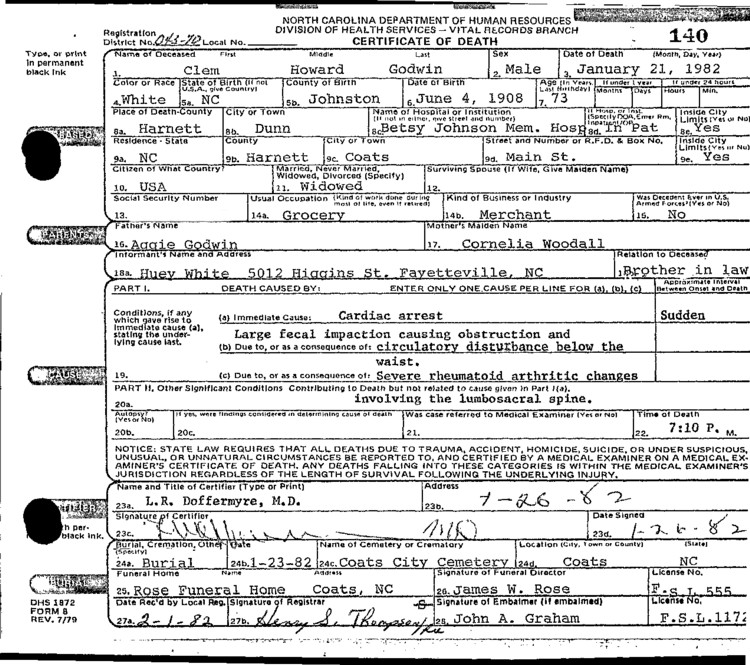 NORTH CAROLINA DEPARTMENT OF HUMAN RESOURCES
DIVISION OF HEALTH SERVICES — VITAL RECORDS BRANCH
CERTIFICATE OF DEATH
140
Registration
District No. 043-70 Local No.
Type, or print
in permanent
black ink
Name of Deceased First Middle Last Sex Date of Death (Month, Day, Year)
1. Clem Howard Godwin 2. Male 3. January 21, 1982
Color or Race State of Birth (if not U.S.A., give Country) County of Birth Date of Birth Age (In Years Last Birthday) If under 1 year Months Days If under 24 hours Hours Min.
4. White 5a. NC 5b. Johnston 6. June 4, 1908 7. 73
Place of Death-County City or Town Name of Hospital or Institution (If not in either, give street and number) If Hosp. or Inst. (Specify DOA, Emer Rm, Inpatient/OP) Inside City Limits (Yes or No)
8a. Harnett 8b. Dunn 8c Betsy Johnson Mem. Hosp 8d. In Pat 8e. Yes
BASED
Residence - State County City or Town Street and Number or R.F.D. & Box No. Inside City Limits (Yes or No)
9a. NC 9b. Harnett 9c. Coats 9d. Main St. 9e. Yes
Citizen of What Country? Married, Never Married, Widowed, Divorced (Specify) Surviving Spouse (If Wife, Give Maiden Name)
10. USA 11. Widowed 12.
Social Security Number Usual Occupation (Kind of work done during most of life, even if retired) Kind of Business or Industry Was Decedent Ever in U.S. Armed Forces? (Yes or No)
13. 14a. Grocery 14b. Merchant 15. No
PARENTS
Father's Name Mother's Maiden Name
16. Aggie Godwin 17. Cornelia Woodall
Informant's Name and Address Relation to Deceased
18a. Huey White 5012 Higgins St. Fayetteville, NC Brother in law
PART I. DEATH CAUSED BY: ENTER ONLY ONE CAUSE PER LINE FOR (a), (b), (c) Approximate Interval Between Onset and Death
Conditions, if any
which gave rise to
immediate cause (a),
stating the under-
lying cause last.
(a) Immediate Cause: Cardiac arrest Sudden
Large fecal impaction causing obstruction and
(b) Due to, or as a consequence of: circulatory disturbance below the
waist.
CAUSE
19. (c) Due to, or as a consequence of: Severe rheumatoid arthritic changes
PART II. Other Significant Conditions Contributing to Death but not related to cause given in Part I(a).
20a. involving the lumbosacral spine.
Autopsy? (Yes or No) If yes, were findings considered in determining cause of death Was case referred to Medical Examiner (Yes or No) Time of Death
20b. 20c. 21. 22. 7:10 P. M.
NOTICE: STATE LAW REQUIRES THAT ALL DEATHS DUE TO TRAUMA, ACCIDENT, HOMICIDE, SUICIDE, OR UNDER SUSPICIOUS,
UNUSUAL, OR UNNATURAL CIRCUMSTANCES BE REPORTED TO, AND CERTIFIED BY A MEDICAL EXAMINER ON A MEDICAL EX-
AMINER'S CERTIFICATE OF DEATH. ANY DEATHS FALLING INTO THESE CATEGORIES IS WITHIN THE MEDICAL EXAMINER'S
JURISDICTION REGARDLESS OF THE LENGTH OF SURVIVAL FOLLOWING THE UNDERLYING INJURY.
Name and Title of Certifier (Type or Print) Address
23a. L.R. Doffermyre, M.D. 23b. 1-26-82
Signature of Certifier Date Signed
23c. 23d. 1-26-82
black ink.
Burial, Cremation, Other (Specify) Date Name of Cemetery or Crematory Location (City, Town or County) (State)
24a. Burial 24b. 1-23-82 24c. Coats City Cemetery 24d. Coats NC
BURIAL
Funeral Home Name Address Signature of Funeral Director License No.
25. Rose Funeral Home Coats, NC 26. James W. Rose F.S.L.555
DHS 1872
FORM 8
REV. 7/79
Date Rec'd by Local Reg. Signature of Registrar Signature of Embalmer (if embalmed) License No.
27a. 2-1-82 27b. Henry S. Thompson 28. John A. Graham F.S.L.1172